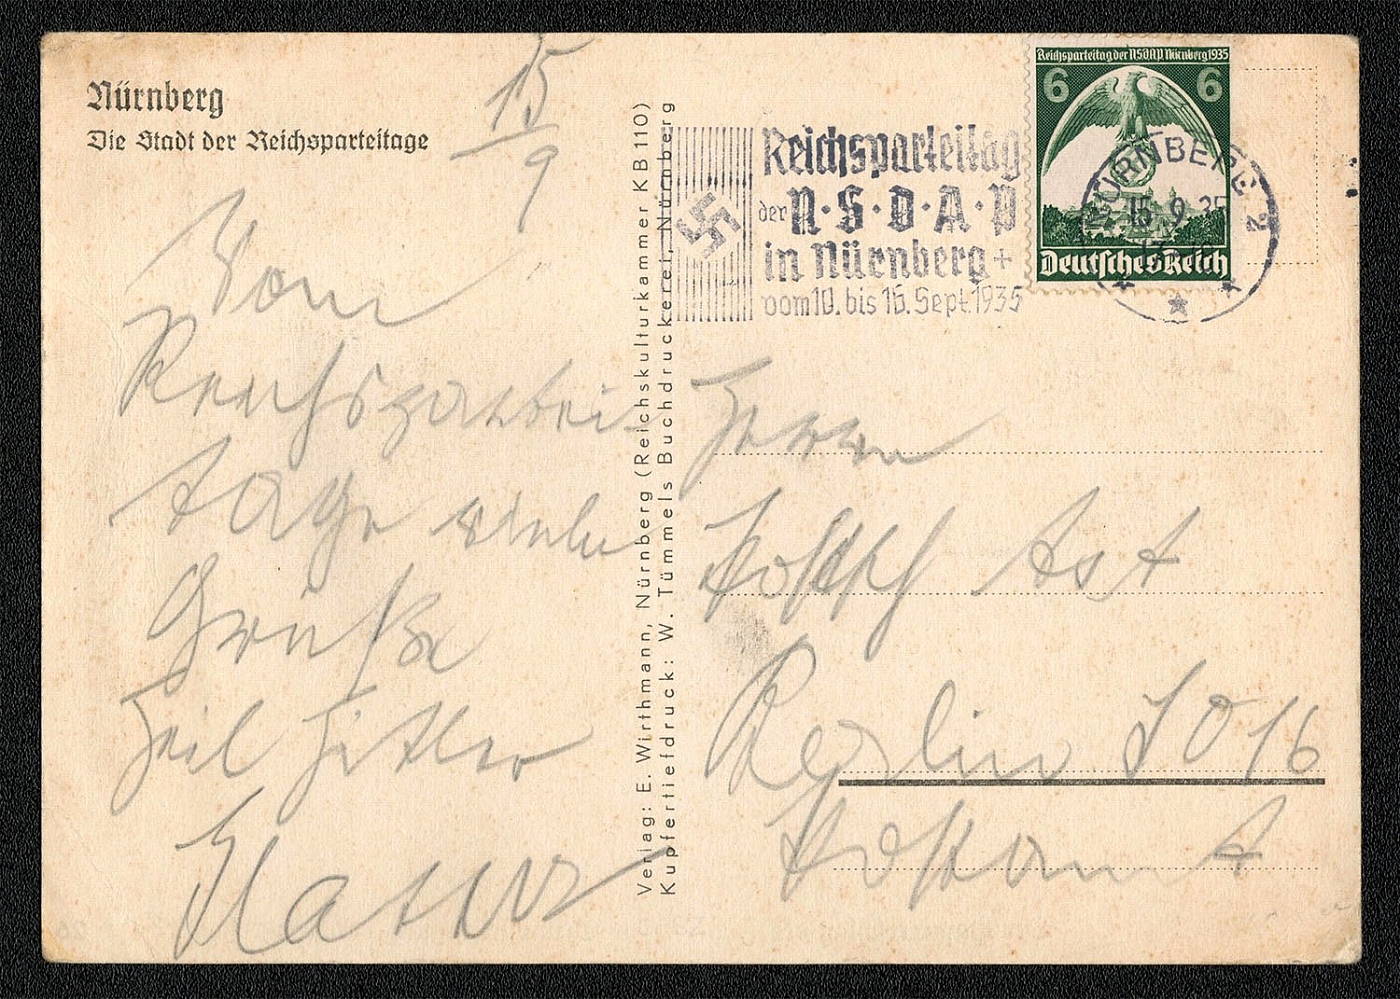 Nürnberg
Die Stadt der Reichsparteitage
15/9
Vom
Reichspartei-
tage viele
Grüße
Heil Hitler
Verlag: E. Wirthmann, Nürnberg (Reichskulturkammer KB 110)
Kupfertiefdruck: W. Tümmels Buchdruckerei, Nürnberg
Reichsparteitag
der N·S·D·A·P
in Nürnberg +
vom 10. bis 16. Sept. 1935
Reichsparteitag der NSDAP Nürnberg 1935
6 6
Deutsches Reich
NÜRNBERG 2
15.9.35
Herrn
Ast
Berlin SO 16
Postamt